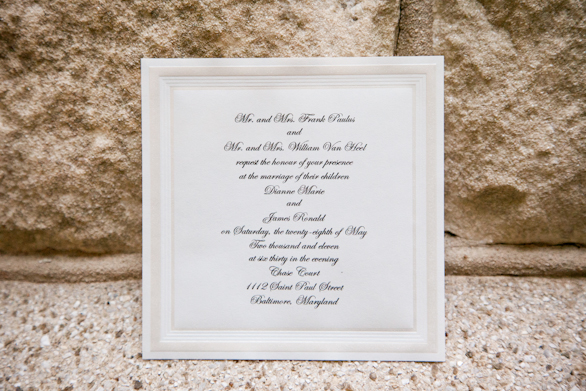 Mr. and Mrs. Frank Paulus
and
Mr. and Mrs. William Van Heel
request the honour of your presence
at the marriage of their children
Dianne Marie
and
James Ronald
on Saturday, the twenty-eighth of May
Two thousand and eleven
at six thirty in the evening
Chase Court
1112 Saint Paul Street
Baltimore, Maryland